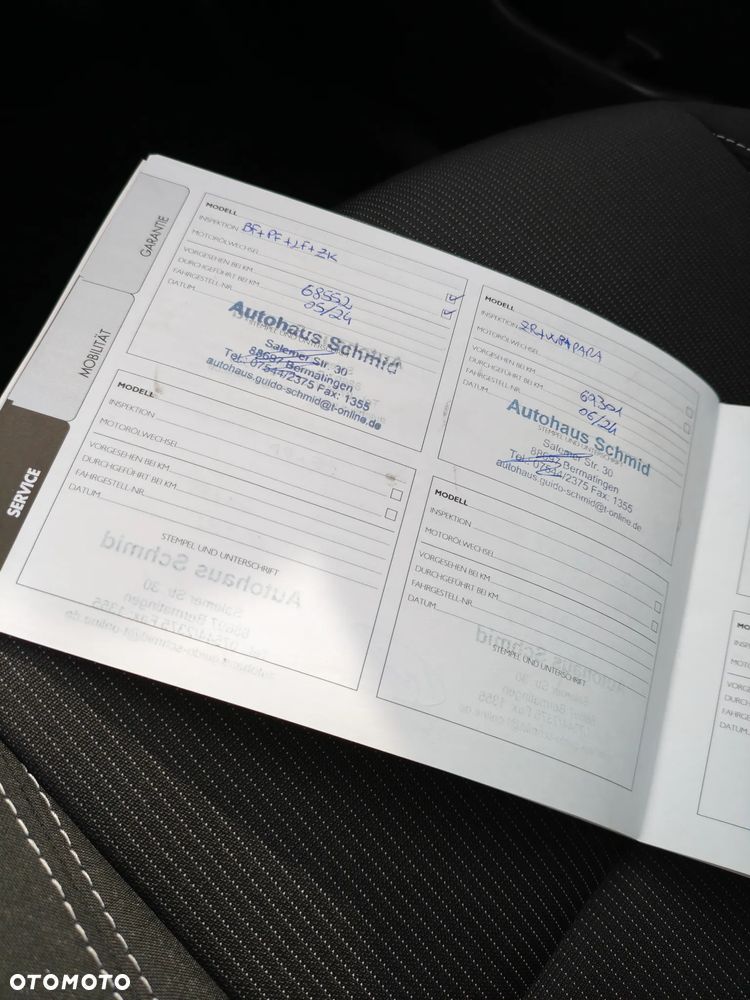 GARANTIE
MOBILITÄT
SERVICE
MODELL
INSPEKTION BF+PF+LF+ZK
MOTORÖLWECHSEL
VORGESEHEN BEI KM
DURCHGEFÜHRT BEI KM 68552
FAHRGESTELL-NR. 05/24
DATUM
Autohaus Schmid
Salemer Str. 30
88697 Bermatingen
Tel.: 07544/2375 Fax: 1355
autohaus.guido-schmid@t-online.de
MODELL
INSPEKTION
MOTORÖLWECHSEL
VORGESEHEN BEI KM
DURCHGEFÜHRT BEI KM
FAHRGESTELL-NR. 06/24
DATUM
STEMPEL UND UNTERSCHRIFT
Autohaus Schmid
Salemer Str. 30
88697 Bermatingen
Tel.: 07544/2375 Fax: 1355
autohaus.guido-schmid@t-online.de
MODELL
INSPEKTION
MOTORÖLWECHSEL
VORGESEHEN BEI KM
DURCHGEFÜHRT BEI KM
FAHRGESTELL-NR.
DATUM
STEMPEL UND UNTERSCHRIFT
MODELL
INSPEKTION
MOTORÖLWECHSEL
VORGESEHEN BEI KM
DURCHGEFÜHRT BEI KM
FAHRGESTELL-NR.
DATUM
STEMPEL UND UNTERSCHRIFT
OTOMOTO